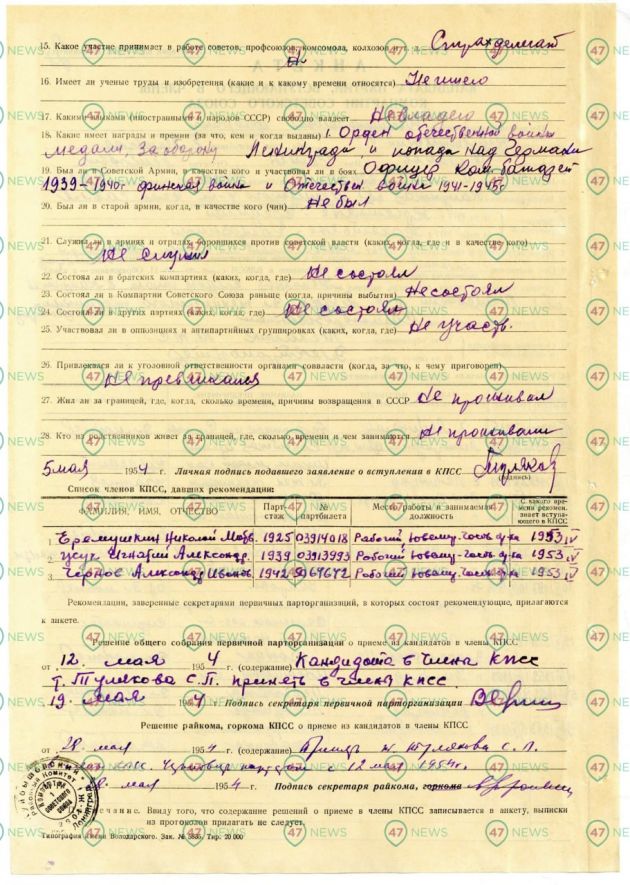 15. Какое участие принимает в работе советов, профсоюзов, комсомола, колхозов и т. д. Страхделегат
16. Имеет ли ученые труды и изобретения (какие и к какому времени относятся) Не имею
17. Какими языками (иностранными и народов СССР) свободно владеет Не владею
18. Какие имеет награды и премии (за что, кем и когда выданы) 1. Орден отечественной войны
медали, За оборону Ленинграда, и победа над Германии
19. Был ли в Советской Армии, в качестве кого и участвовал ли в боях Офицер Ком. батареи
1939-1940г финская война и Отечествен война 1941-1945г
20. Был ли в старой армии, когда, в качестве кого (чин) Не был
21. Служил ли в армиях и отрядах, боровшихся против советской власти (каких, когда, где и в качестве кого)
Не служил
22. Состоял ли в братских компартиях (каких, когда, где) Не состоял
23. Состоял ли в Компартии Советского Союза раньше (когда, причины выбытия) Не состоял
24. Состоял ли в других партиях (каких, когда, где) Не состоял
25. Участвовал ли в оппозициях и антипартийных группировках (каких, когда, где) Не участв.
26. Привлекался ли к уголовной ответственности органами совласти (когда, за что, к чему приговорен)
Не привлекался
27. Жил ли за границей, где, когда, сколько времени, причины возвращения в СССР Не проживал
28. Кто из родственников живет за границей, где, сколько времени и чем занимаются Не проживали
5 мая 1954 г. Личная подпись подавшего заявление о вступлении в КПСС Туляков
(подпись)
Список членов КПСС, давших рекомендации:
ФАМИЛИЯ, ИМЯ, ОТЧЕСТВО Парт-стаж № партбилета Место работы и занимаемая должность С какого времени рекомендующий знает вступающего в КПСС
1. Еремушкин Николай Матв. 1925 03914018 Рабочий 1953 IV
2. Усук Игнатий Александр. 1939 03913993 Рабочий 1953 IV
3. Чернос Александр Иванов. Рабочий 1953 IV
Рекомендации, заверенные секретарями первичных парторганизаций, в которых состоят рекомендующие, прилагаются
к анкете.
Решение общего собрания первичной парторганизации о приеме из кандидатов в члены КПСС
от 12. мая 1954 г. (содержание) Кандидата в члена КПСС
т. Тулякова С.П. принять в члены КПСС.
19. мая 1954 г. Подпись секретаря первичной парторганизации
Решение райкома, горкома КПСС о приеме из кандидатов в члены КПСС
от 28. мая 1954 г. (содержание) т. Тулякова С. П.
с 12 мая 1954г.
мая 1954 г. Подпись секретаря райкома, горкома
Примечание. Ввиду того, что содержание решений о приеме в члены КПСС записывается в анкету, выписки
из протоколов прилагать не следует.
Типография имени Володарского. Зак. № 5835. Тир. 20 000
47 NEWS